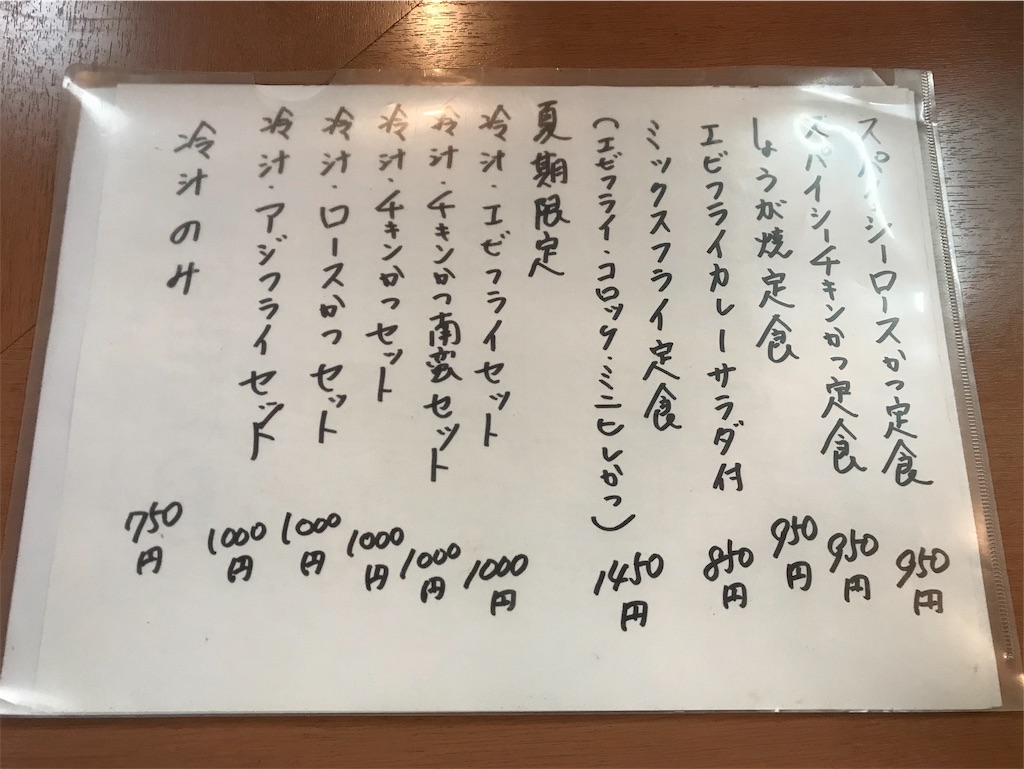 スパイシーロースかつ定食 950円
スパイシーチキンかつ定食 950円
しょうが焼定食 950円
エビフライカレーサラダ付 850円
ミックスフライ定食
(エビフライ・コロッケ・ミニヒレかつ) 1450円
夏期限定
冷汁・エビフライセット 1000円
冷汁・チキンかつ南蛮セット 1000円
冷汁・チキンかつセット 1000円
冷汁・ロースかつセット 1000円
冷汁・アジフライセット 1000円
冷汁のみ 750円